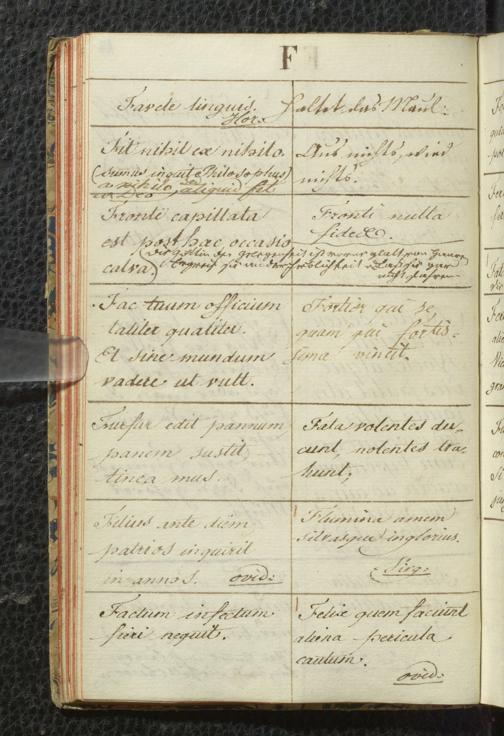 F
Favete linguis. Haltet das Maul:
Hor:
Fit nihil ex nihilo. Aus nichts, wird
(sumus inquit Philosophus) nichts.
a nihilo, aliquid fit
Fronti capillata Fronti nulla
est post hac occasio fides.
calva.
Fac tuum officium Fortior qui se
taliter qualiter. quam qui fortis-
Et sine mundum sima vincit.
vadere ut vult.
Furfur edit pannum Fata volentes du-
panem sustit, cunt, nolentes tra-
tinea mus. hunt;
Filius ante diem Flumina amem
patrios inquirit silvasque inglorius.
in annos. ovid: Virg:
Factum infectum Felix quem faciunt
fieri nequit. aliena pericula
cautum.
ovid: